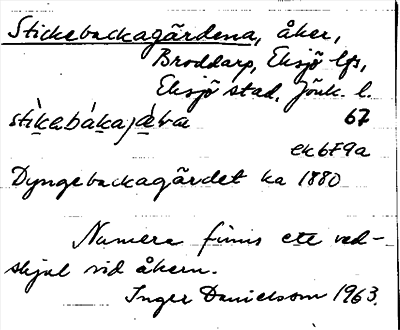 Stickebackagärdena, åker,
Broddarp, Eksjö lfs,
Eksjö stad, Jönk. l.
67
ek679a
Dyngebackagärdet ka 1880
Numera finns ett ved-
skjul vid åkern.
Inger Danielsson 1963.